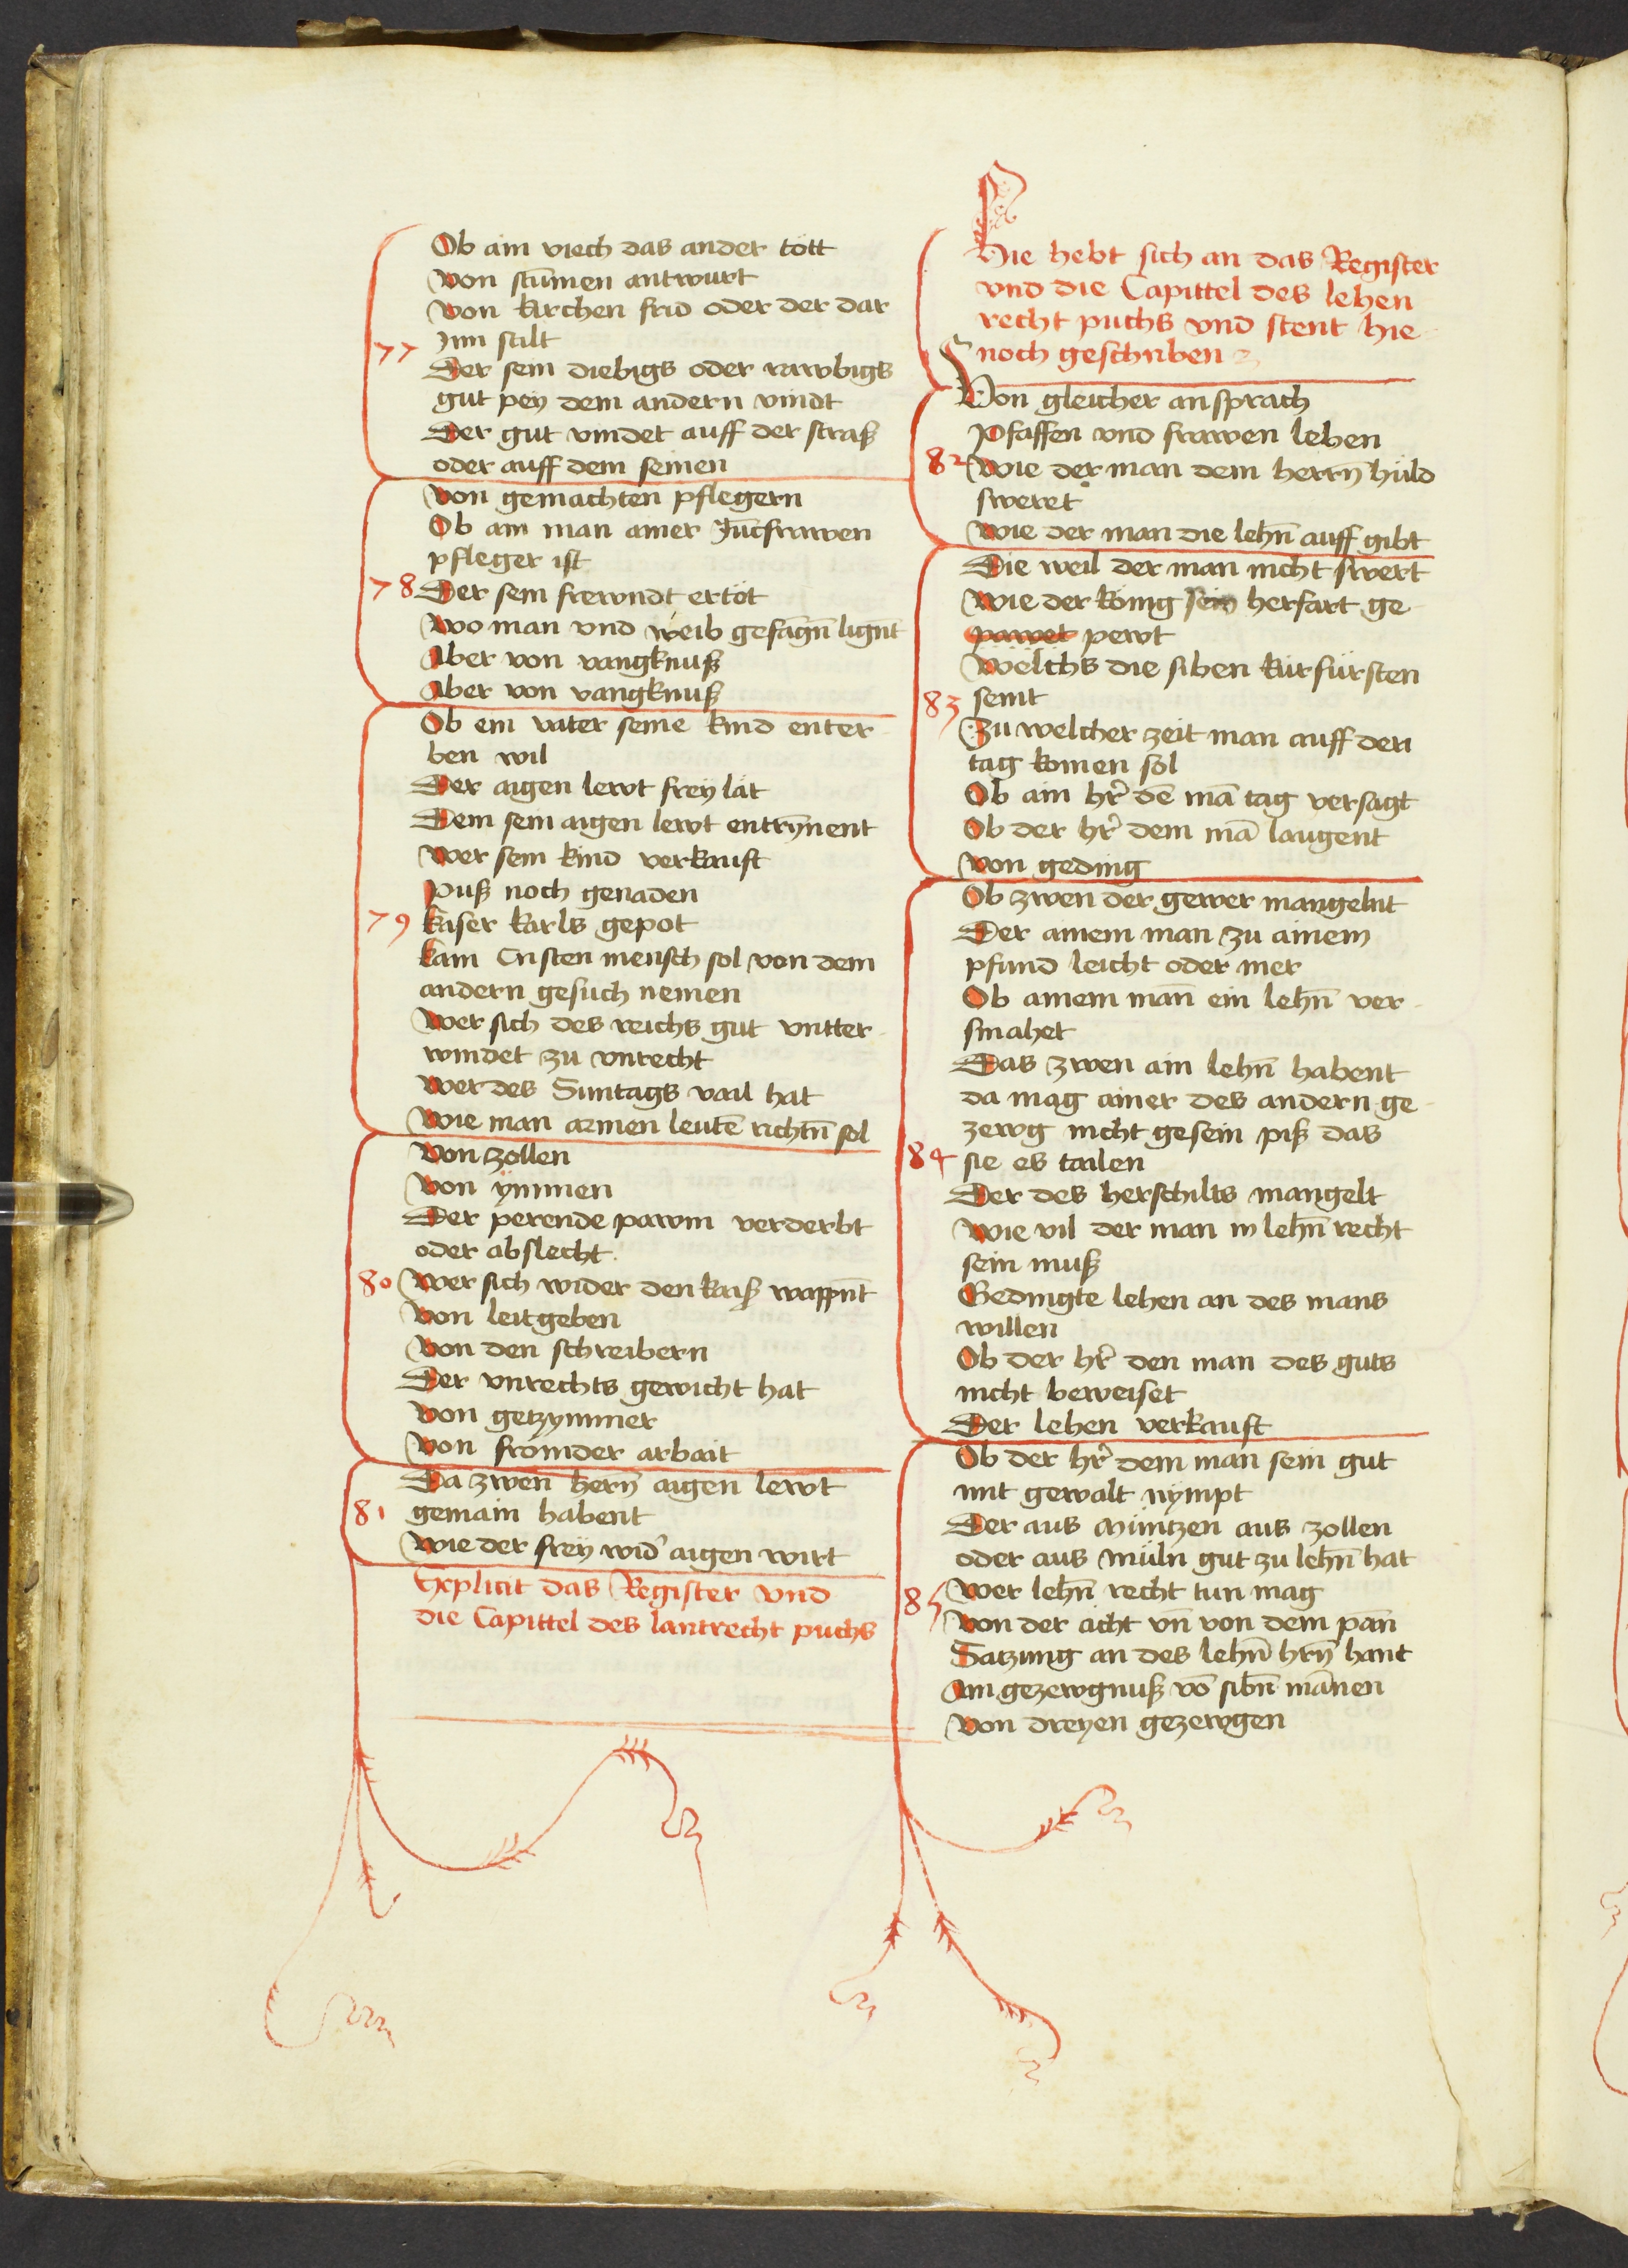 Ob ain viech das ander tött
Von stūmen antwurt
Von kirchen frid oder der dar
Inn stilt
77
Der sein diebigs oder rawbigs
gut pey dem andern vindt
Der gut vindet auff der straß
oder auff dem seinen
Von gemachten pflegern
Ob ain man ainer Jūcfrawen
pfleger ist
78
Der sein frewndt ertöt
Wo man vnd weib gefāgn̄ lignt
Aber von vangknuß
Aber von vangknuß
Ob ein vater seine kind enter
ben wil
Der aigen lewt frey lät
Dem sein aigen lewt entrȳnent
Wer sein kind verkauft
Puß noch genaden
79
Kaiser karls gepot
Kain Cristen mensch sol von dem
andern gesuch nemen
Wer sich des reichs gut vntter
windet zu vnrecht
Wer des Suntags vail hat
Wie man armen leutē richtn̄ sol
Von zollen
Von ymmen
Der perende pawm verderbt
oder abslecht
80
Wer sich wider den kaiß wappn̄t
Von leitgeben
Von den schreibern
Der vnrechts gewicht hat
Von getzymmer
Von frömder arbait
Da zwen hern̄ aigen lewt
81
gemain habent
Wie der frey wid' aigen wirt
Explicit das Register vnd
die Capittel des lantrecht puchs
Hie hebt sich an das Register
vnd die Capittel des lehen
recht puchs vnd stent hie
noch geschriben
Von gleicher ansprach
Pfaffen vnd frawen lehen
82
Wie der man dem herrn hüld
sweret
Wie der man die lehn̄ auff gibt
Die weil der man nicht swert
Wie der König sein herfart ge
pawet pewt
Welchs die siben kürfürsten
83
seint
Zu welcher zeit man auff den
tag komen sol
Ob ain hr̄ dē mā tag versagt
Ob der hr̄ dem mā laugent
Von geding
Ob zwen der gewer mangelnt
Der ainem man zu ainem
pfund leicht oder mer
Ob ainem man̄ ein lehn̄ ver
smahet
Das zwen ain lehn̄ habent
da mag ainer des andern ge
zewg nicht gesein piß das
84
sie es tailen
Der des herschilts mangelt
Wie vil der man in lehn̄ recht
sein muß
Gedingte lehen an des mans
willen
Ob der hr̄ den man des guts
nicht beweiset
Der lehen verkauft
Ob der hr̄ dem man sein gut
mit gewalt nympt
Der aus Müntzen aus zollen
oder aus müln gut zu lehn̄ hat
Wer lehn̄ recht tun mag
85
Von der ächt vn̄ von dem pan̄
Satzung an des lehn̄ hrn̄ hant
Ain gezewgnuß vō sibn̄ mānen
Von dreyen gezewgen